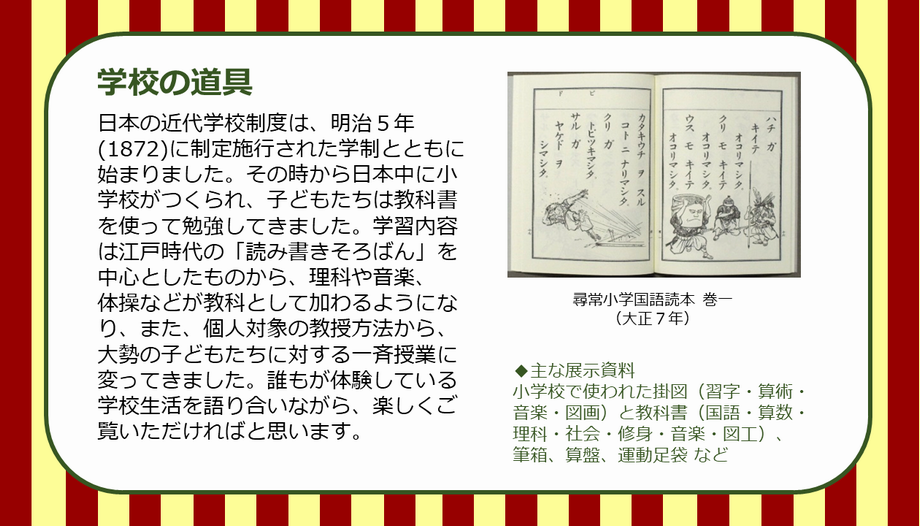 学校の道具
日本の近代学校制度は、明治５年
(1872)に制定施行された学制とともに
始まりました。その時から日本中に小
学校がつくられ、子どもたちは教科書
を使って勉強してきました。学習内容
は江戸時代の「読み書きそろばん」を
中心としたものから、理科や音楽、
体操などが教科として加わるようにな
り、また、個人対象の教授方法から、
大勢の子どもたちに対する一斉授業に
変ってきました。誰もが体験している
学校生活を語り合いながら、楽しくご
覧いただければと思います。
ハチ ガ
キイテ
オコリマシタ。
クリ モ キイテ
オコリマシタ。
ウス モ キイテ
オコリマシタ。
カタキウチ ヲ スル
コト ニ ナリマシタ。
クリ ガ
トビツキマシタ。
サル ガ
ヤケド ヲ
シマシタ。
ビ
ド
尋常小学国語読本 巻一
（大正７年）
◆主な展示資料
小学校で使われた掛図（習字・算術・
音楽・図画）と教科書（国語・算数・
理科・社会・修身・音楽・図工）、
筆箱、算盤、運動足袋 など